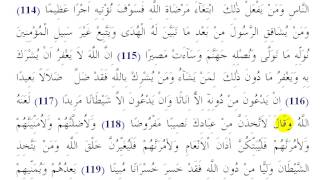 النَّاسِ وَمَنْ يَفْعَلْ ذٰلِكَ ابْتِغَآءَ مَرْضَاةِ اللّٰهِ فَسَوْفَ نُؤْتِيهِ اَجْرًا عَظِيمًا (114)
وَمَنْ يُشَاقِقِ الرَّسُولَ مِنْ بَعْدِ مَا تَبَيَّنَ لَهُ الْهُدٰى وَيَتَّبِعْ غَيْرَ سَبِيلِ الْمُؤْمِنِينَ
نُوَلِّهِ مَا تَوَلّٰى وَنُصْلِهِ جَهَنَّمَ وَسَآءَتْ مَصِيرًا (115) اِنَّ اللّٰهَ لَا يَغْفِرُ اَنْ يُشْرَكَ بِهِ
وَيَغْفِرُ مَا دُونَ ذٰلِكَ لِمَنْ يَشَآءُ وَمَنْ يُشْرِكْ بِاللّٰهِ فَقَدْ ضَلَّ ضَلَالًا بَعِيدًا
(116) اِنْ يَدْعُونَ مِنْ دُونِهِ اِلَّا اِنَاثًا وَاِنْ يَدْعُونَ اِلَّا شَيْطَانًا مَرِيدًا (117) لَعَنَهُ
اللّٰهُ وَقَالَ لَاَتَّخِذَنَّ مِنْ عِبَادِكَ نَصِيبًا مَفْرُوضًا (118) وَلَاُضِلَّنَّهُمْ وَلَاُمَنِّيَنَّهُمْ
وَلَاٰمُرَنَّهُمْ فَلَيُبَتِّكُنَّ اٰذَانَ الْاَنْعَامِ وَلَاٰمُرَنَّهُمْ فَلَيُغَيِّرُنَّ خَلْقَ اللّٰهِ وَمَنْ يَتَّخِذِ
الشَّيْطَانَ وَلِيًّا مِنْ دُونِ اللّٰهِ فَقَدْ خَسِرَ خُسْرَانًا مُبِينًا (119) يَعِدُهُمْ وَيُمَنِّيهِمْ